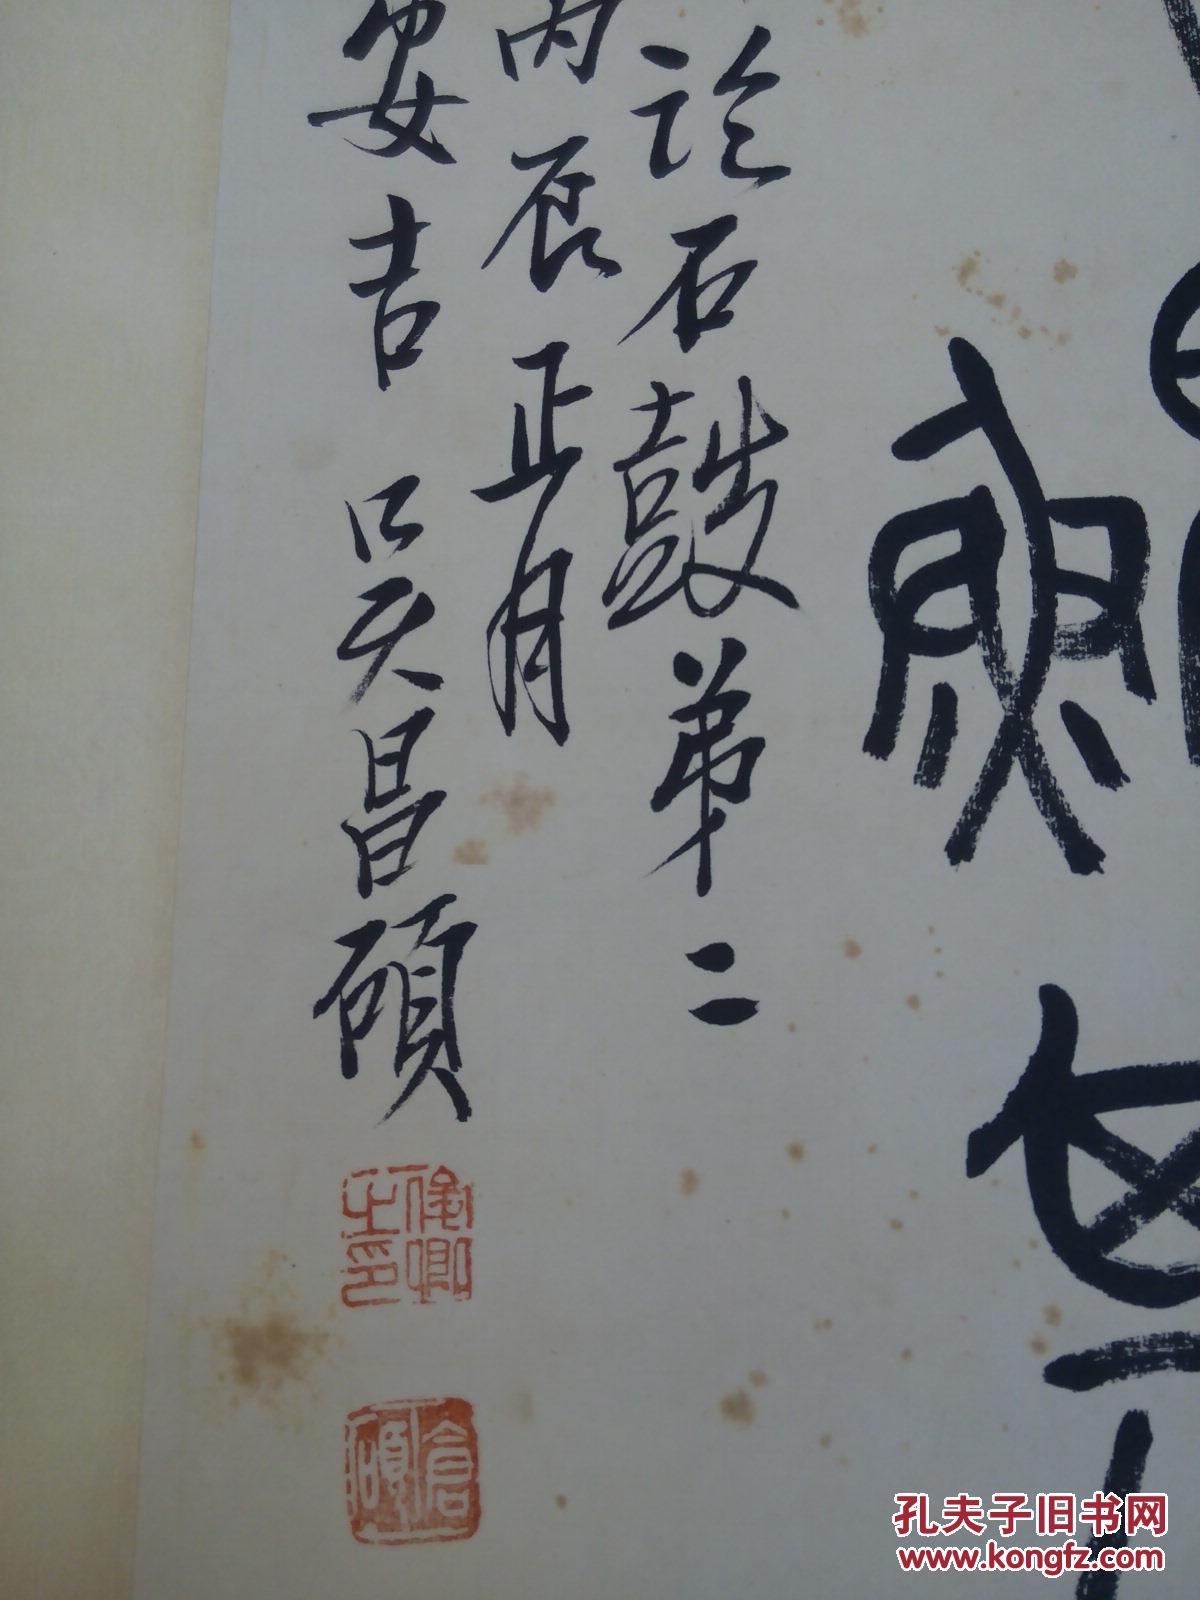 論石鼓弟二
丙辰正月
安吉吳昌碩
俊卿之印
倉碩
孔夫子旧书网
www.kongfz.com